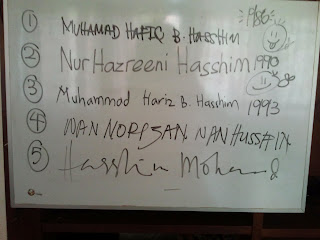 ① MUHAMAD HAFIC B. HASSHIM 1986
② Nur Hazreeni Hasshim 1990
③ Muhammad Hariz B. Hasshim 1993
④ WAN NORISAN WAN HUSSAIN
⑤ Hasshim Mohamad